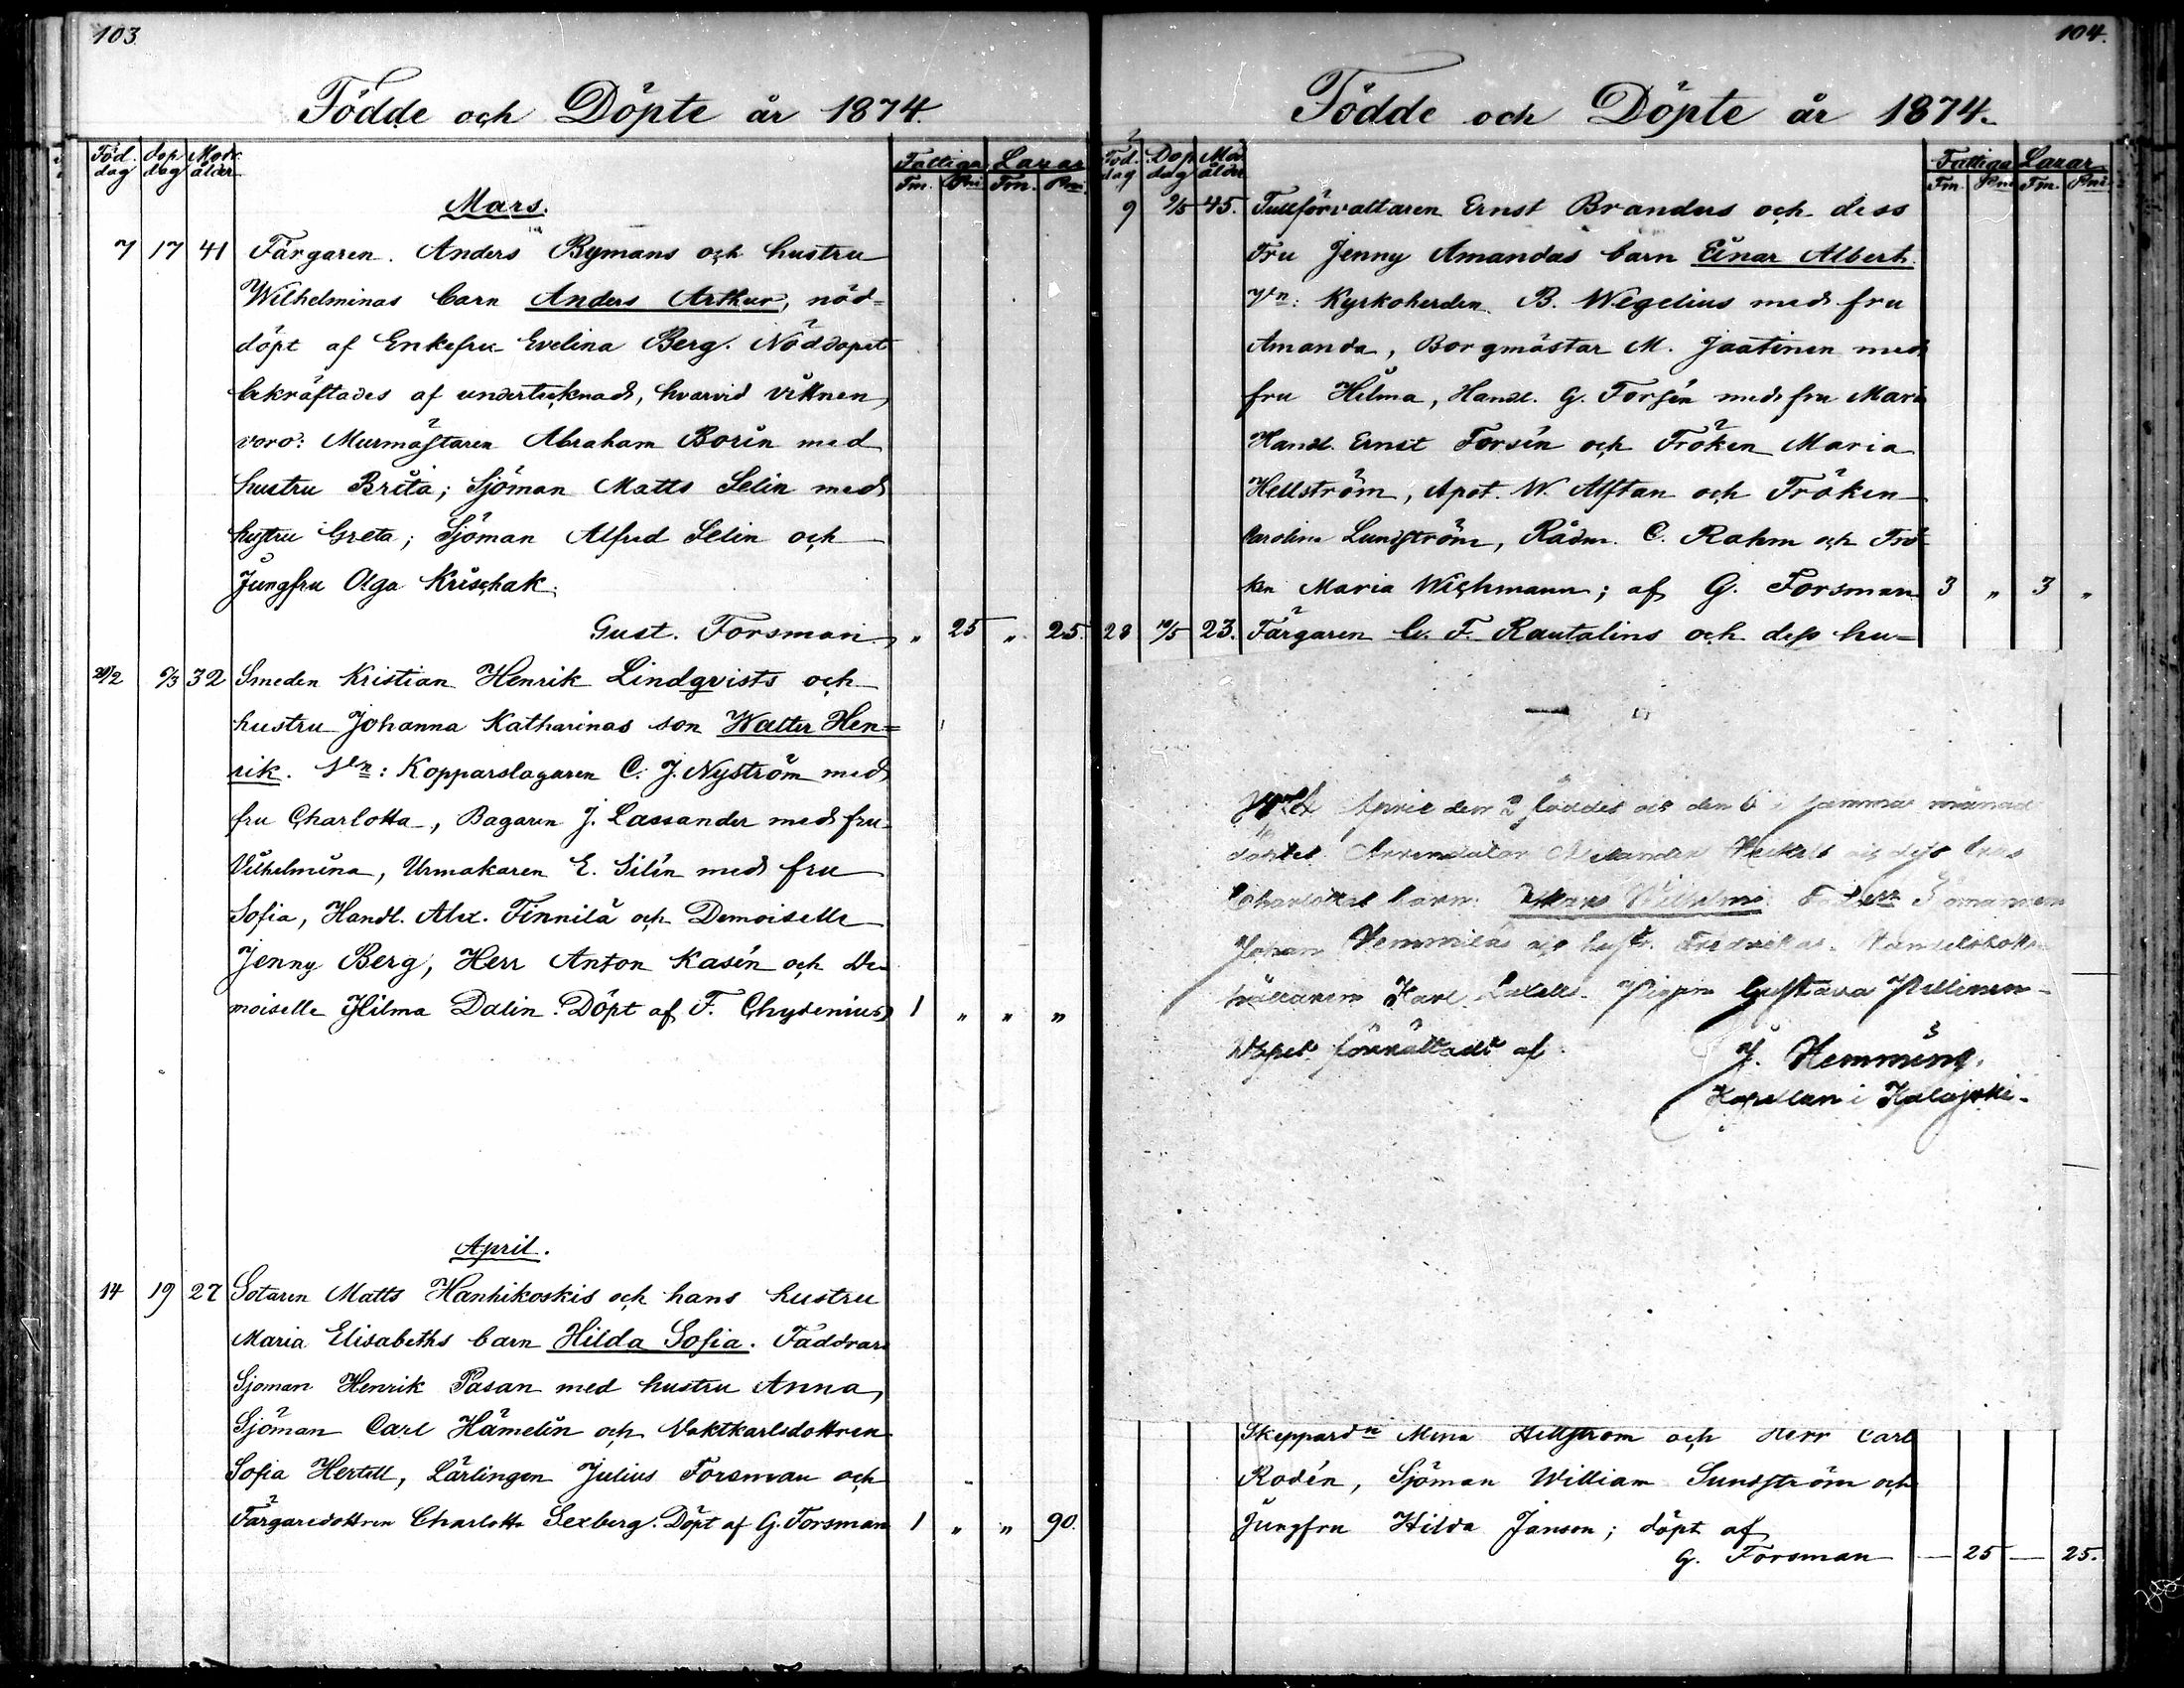 103
Födde och Döpte år 1874.
Föd. dag dop dag Modr. ålder Fattiga Lazar.
Fm. Pni Fm. Pni
Mars.
7 17 41 Färgaren Anders Rymans och hustru
Wilhelminas barn Anders Arthur, nöd-
döpt af Enkefru Evelina Berg. Nöddopet
bekräftades af undertecknad, hvarvid vittnen
voro: Murmästaren Abraham Borin med
hustru Brita; Sjöman Matts Selin med
hustru Greta; Sjöman Alfred Selin och
Jungfru Olga Krischak.
Gust. Forsman. " 25 " 25.
6/3 32 Smeden Kristian Henrik Lindqvists och
hustru Johanna Katharinas son Walter Hen=
rik. Vn: Kopparslagaren C. J. Nyström med
fru Charlotta, Bagaren J. Lassander med fru
Vilhelmina, Urmakaren E. Silén med fru
Sofia, Handl. Alex. Finnilä och Demoiselle
Jenny Berg, Herr Anton Kasén och De-
moiselle Hilma Dalin. Döpt af F. Chydenius 1 " " "
April.
14 19 27 Sotaren Matts Hanhikoskis och hans hustru
Maria Elisabeths barn Hilda Sofia. Faddrar
Sjöman Henrik Pasan med hustru Anna,
Sjöman Carl Hämelin och Vaktkarlsdottren
Sofia Hertell, Lärlingen Julius Forsman och
Färgaredottren Charlotta Sexberg. Döpt af G. Forsman 1 " " 90.
104.
Födde och Döpte år 1874.
Föd. dag Dop dag Mod ålder Fattiga Lazar
Fm. Pni Fm. Pni
9 9/5 45. Tullförvaltaren Ernst Branders och dess
Fru Jenny Amandas barn Einar Albert.
Vn: Kyrkoherden B. Wegelius med fru
Amanda, Borgmästar M. Jaatinen med
fru Hilma, Handl. G. Forsén med fru Maria
Handl. Ernst Forsén och Fröken Maria
Hellström, Apot. W. Alftan och Fröken
Carolina Lundström, Rådm. C. Rahm och Frö-
ken Maria Wichmann; af G. Forsman 3 " 3 "
28 10/5 23. Färgaren C. F. Rautalins och dess hu-
April den 2 föddes och den 6 i samma månad
döptes Arrendator Alexander och dess fru
Charlottas barn: Wilhelm.
Johan hustr. Fredrika.
Karl Gustava
Dopet förrättadt af
J. Hemming.
Kapellan i Kalajoki.
Skepparedn Mina Hellström och Herr Carl
Rodén, Sjöman William Sundström och
Jungfru Hilda Janson; döpt af
G. Forsman — 25 — 25.